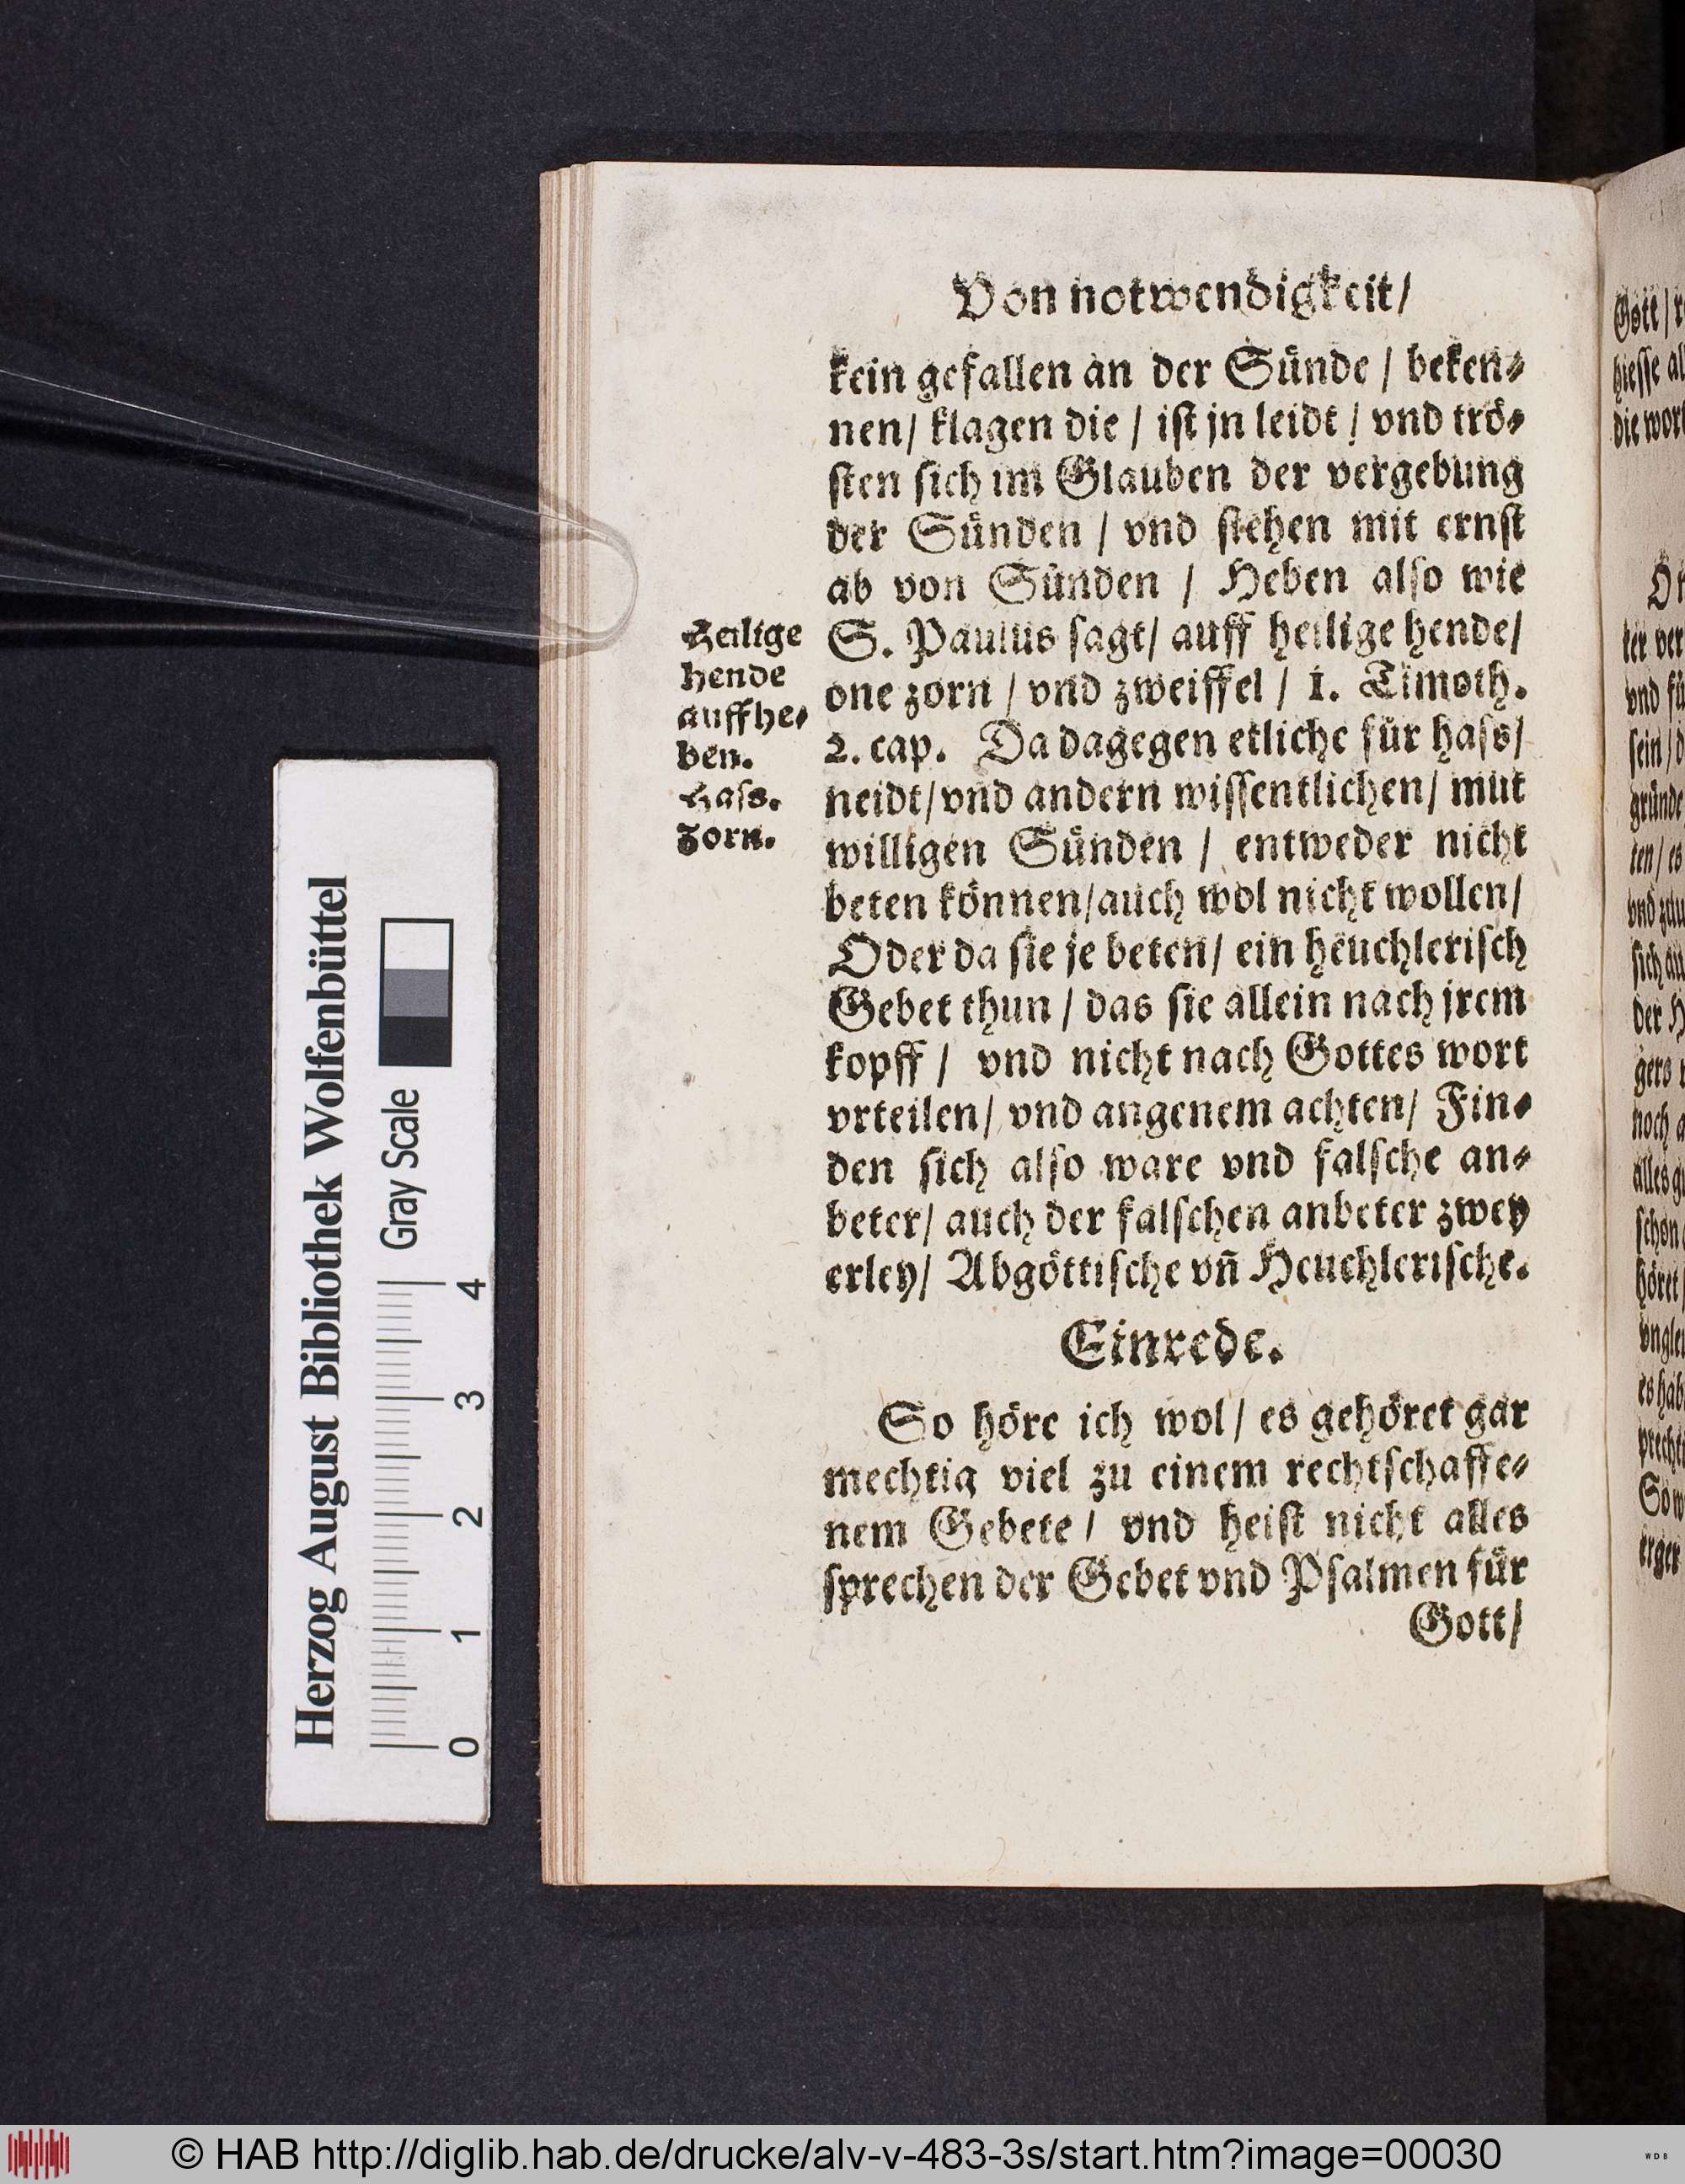 Von notwendigkeit/
kein gefallen an der Sünde / beken⸗
nen/ klagen die / iſt jn leidt / vnd trö⸗
ſten ſich im Glauben der vergebung
der Sünden / vnd ſtehen mit ernſt
ab von Sünden / Heben alſo wie
S. Paulus ſagt/ auff heilige hende/
one zorn / vnd zweiffel / 1. Timoth.
2. cap. Da dagegen etliche für haſs/
neidt/ vnd andern wiſſentlichen/ mut
willigen Sünden / entweder nicht
beten können/ auch wol nicht wollen/
Oder da ſie je beten/ ein heuchleriſch
Gebet thun / das ſie allein nach jrem
kopff / vnd nicht nach Gottes wort
vrteilen/ vnd angenem achten/ Fin⸗
den ſich alſo ware vnd falſche an⸗
beter/ auch der falſchen anbeter zwey
erley/ Abgöttiſche vn̄ Heuchleriſche.
Heilige
hende
auffhe⸗
ben.
Haſs.
Zorn.
Einrede.
So höre ich wol/ es gehöret gar
mechtig viel zu einem rechtſchaffe⸗
nem Gebete / vnd heiſt nicht alles
ſprechen der Gebet vnd Pſalmen für
Gott/
Herzog August Bibliothek Wolfenbüttel
Gray Scale
0 1 2 3 4
Gott/
hieſſe
ter
vnd
ſein/
ten/ es
der
noch
alles
höret/
© HAB http://diglib.hab.de/drucke/alv-v-483-3s/start.htm?image=00030
WDB